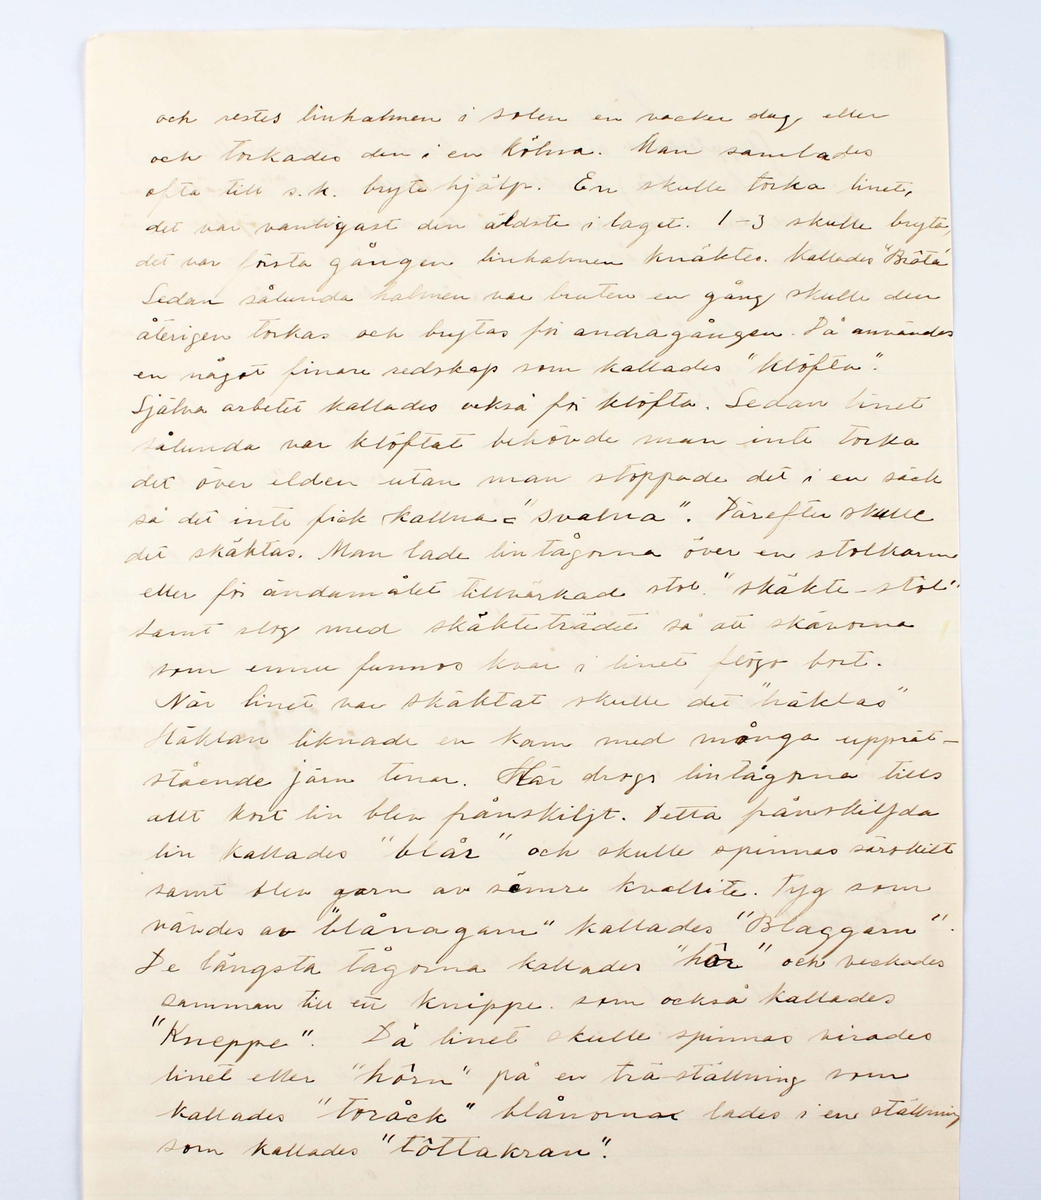 och restes linhalmen i solen en vacker dag, eller
och torkades den i en Kölna. Man samlades
ofta till s.k. brytehjälp. En skulle torka linet,
det var vanligast den äldste i laget. 1-3 skulle bryta,
det var första gången linhalmen knäktes. Kallades "Bråtå"
Sedan sålunda halmen var bruten en gång skulle den
återigen torkas och brytas för andra gången. Då användes
en något finare redskap som kallades "klöfta".
Själva arbetet kallades också för klöfta. Sedan linet
sålunda var klöftat behövde man inte torka
det över elden utan man stoppade det i en säck
så det inte fick kallna = "svalna". Därefter skulle
det skäktas. Man lade lintågorna över en stolkarm
eller för ändamålet tillvärkad stol. "skäkte-stol"
samt slog med skäkteträdet så att skävorna
som ennu funnos kvar i linet flögo bort.
När linet var skäktat skulle det "häklas"
Häklan liknade en kam med många upprät-
stående järn tenar. Här drogs lintågorna tills
allt kort lin blev frånskiljt. Detta frånskiljda
lin kallades "blår" och skulle spinnas särskilt
samt blev garn av sämre kvallite. Tyg som
vävdes av "blånagarn" kallades "Blaggarn".
De längsta tågorna kallades "hör" och veckades
samman till ett knippe. som också kallades
"Kneppe". Då linet skulle spinnas virades
linet eller "hörn" på en trä-ställning som
kallades "toråck" blånorna lades i en ställning
som kallades "tôttakran".